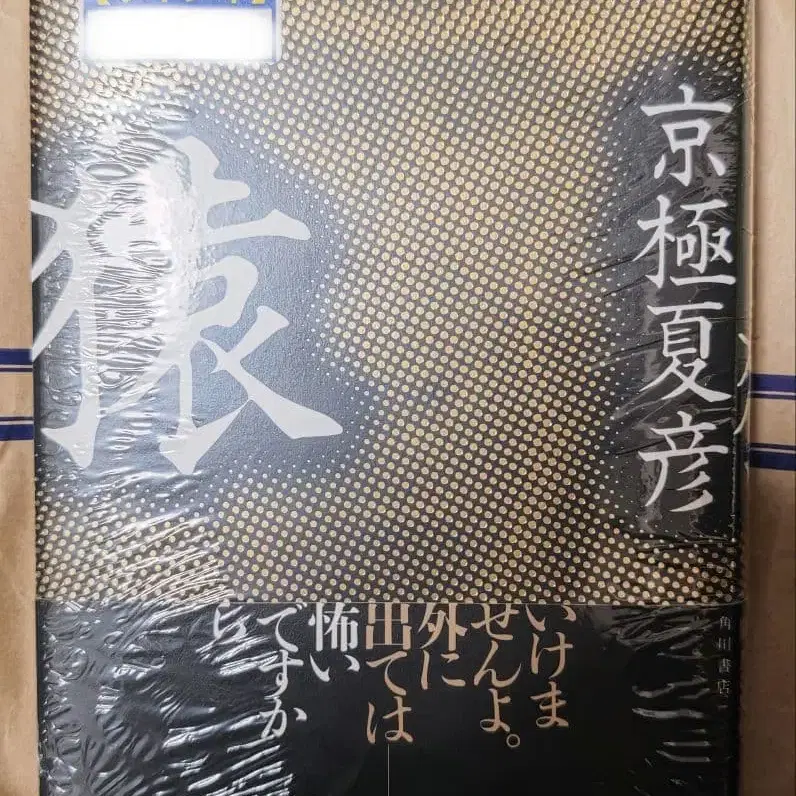 京極夏彦
猿
いけま
せんよ。
外に
出ては
怖い
ですか
ら
角川書店